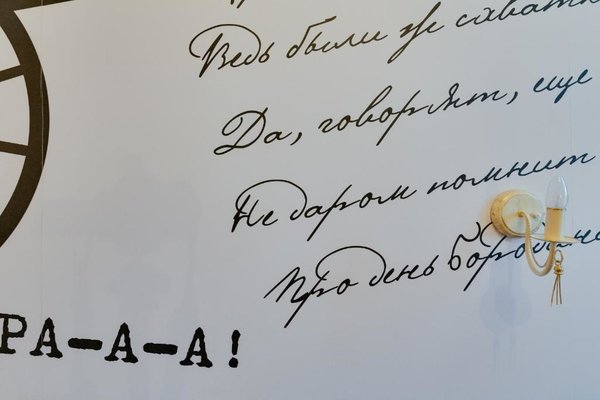 Ведь были ж схватки
Да, говорят, еще
Не даром помнит
Про день Бородина
РА-А-А!